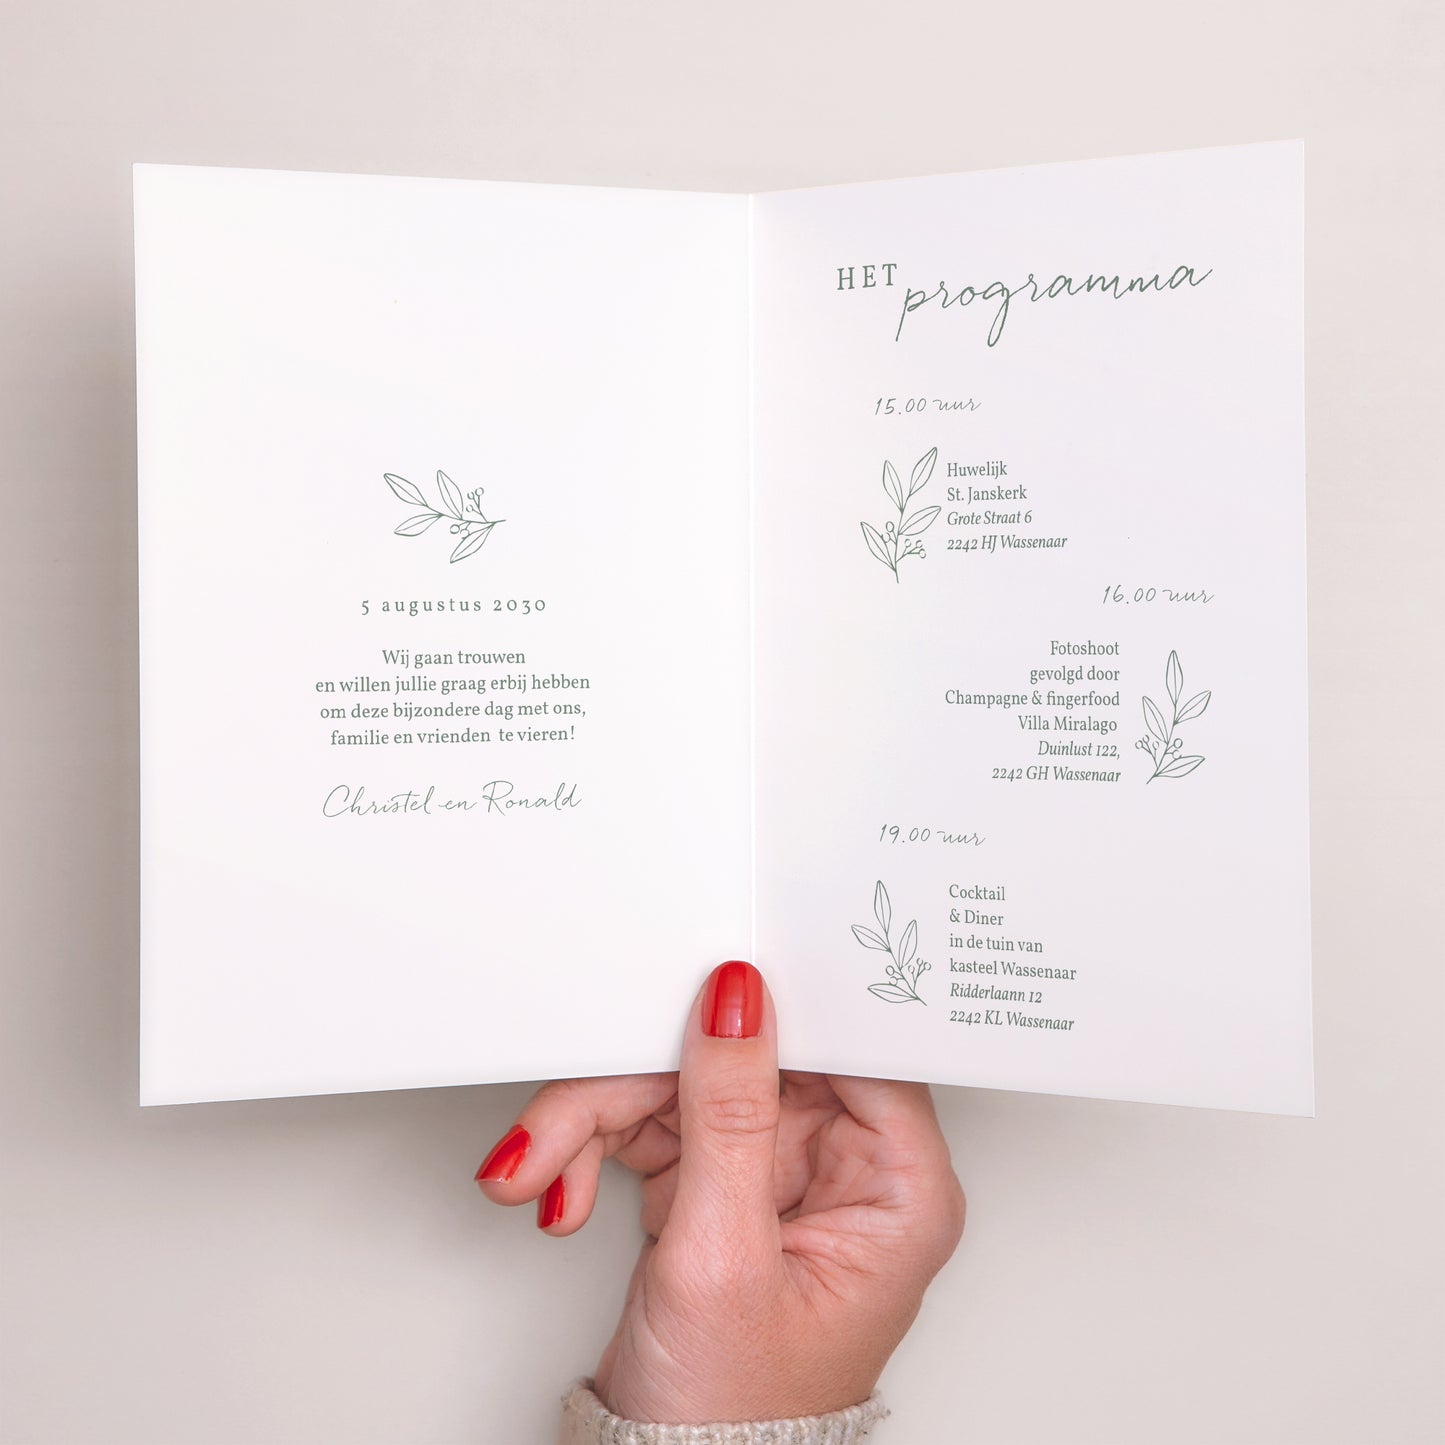 5 augustus 2030
Wij gaan trouwen
en willen jullie graag erbij hebben
om deze bijzondere dag met ons,
familie en vrienden te vieren!
Christel en Ronald
HET programma
15.00 uur
Huwelijk
St. Janskerk
Grote Straat 6
2242 HJ Wassenaar
16.00 uur
Fotoshoot
gevolgd door
Champagne & fingerfood
Villa Miralago
Duinlust 122,
2242 GH Wassenaar
19.00 uur
Cocktail
& Diner
in de tuin van
kasteel Wassenaar
Ridderlaann 12
2242 KL Wassenaar